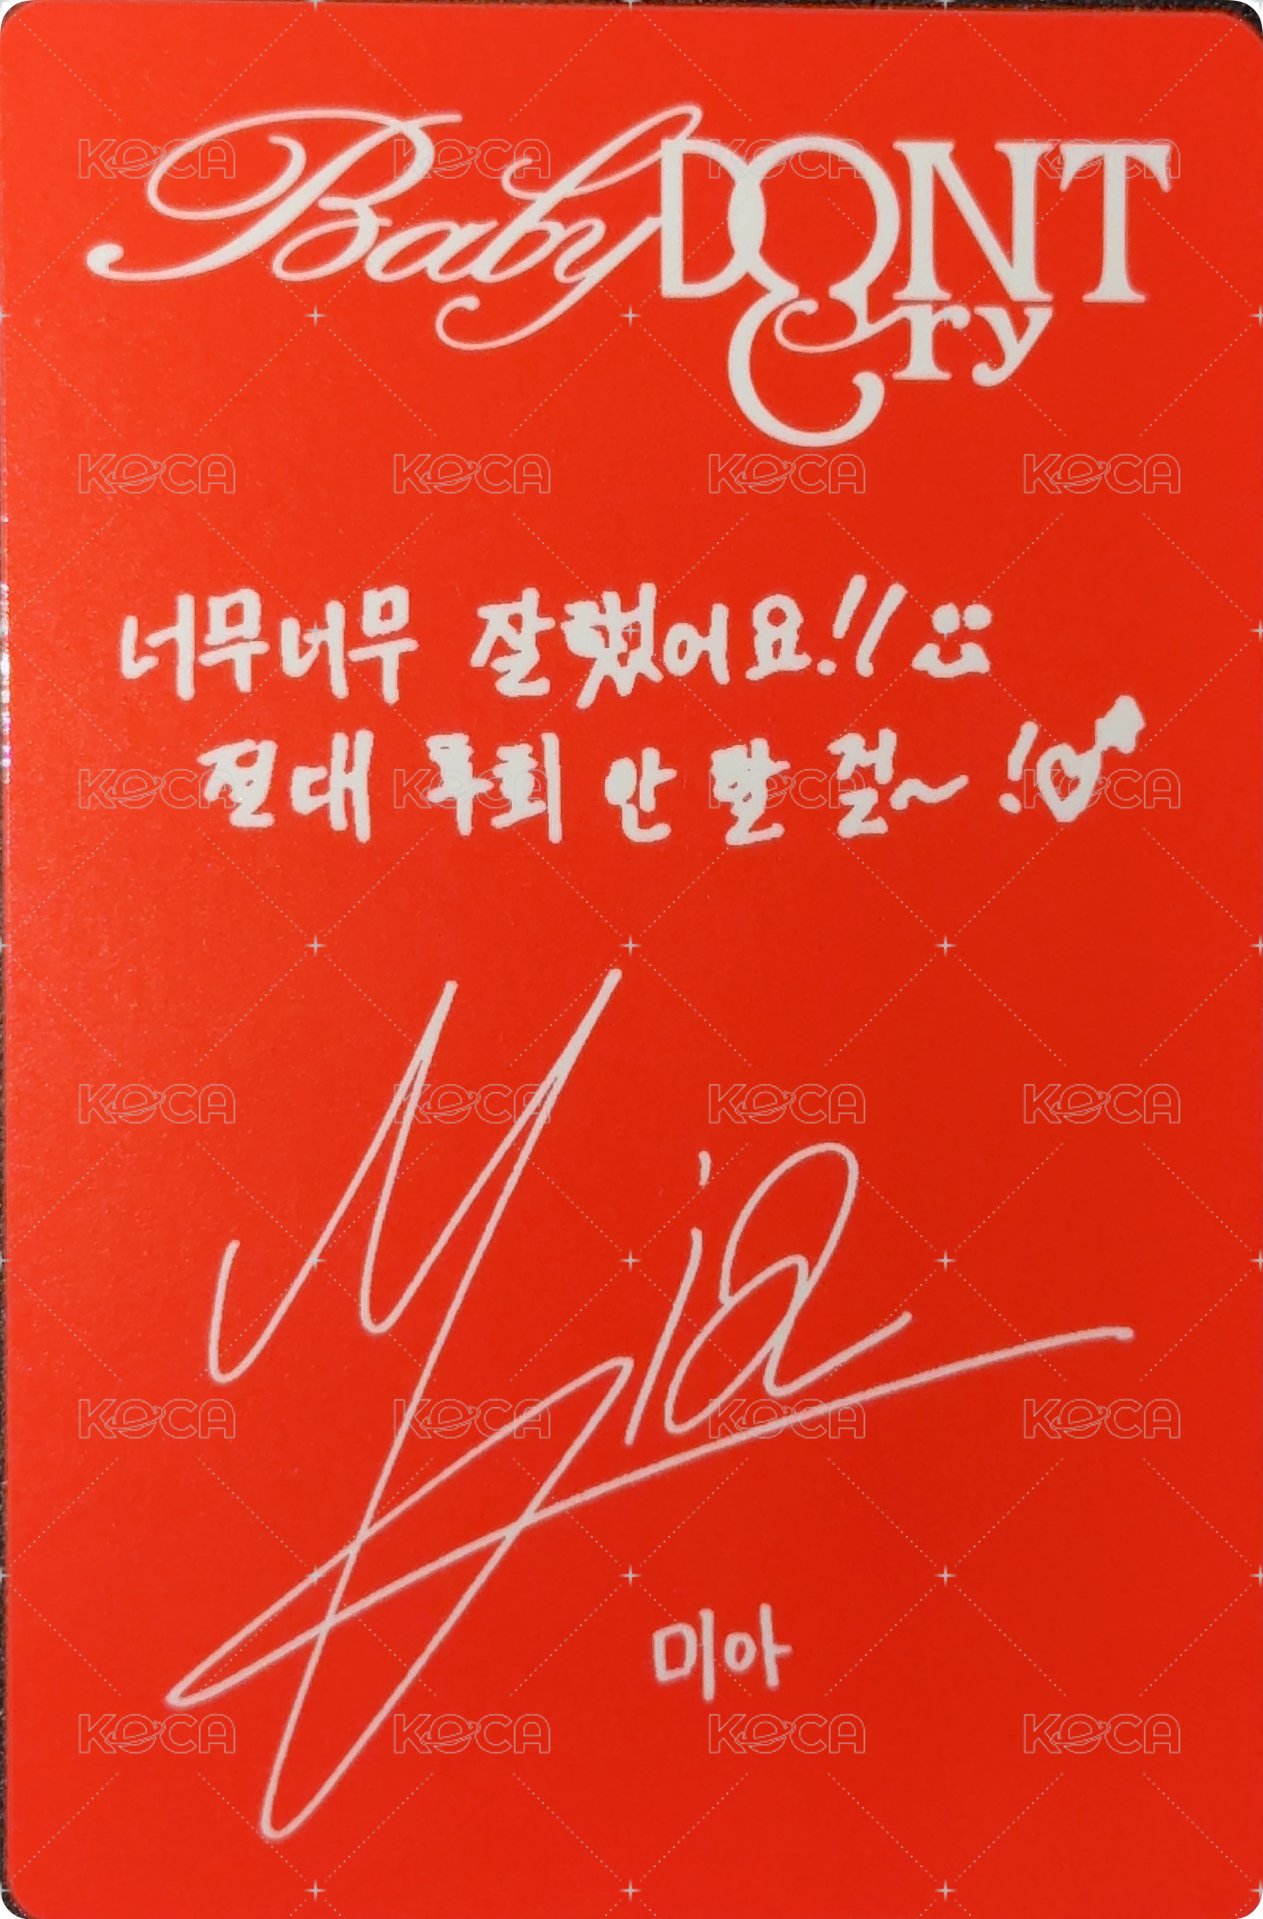 Baby DONT Cry
너무너무 잘했어요!!
절대 후회 안 할 걸~!
Mia
미아
KOCA